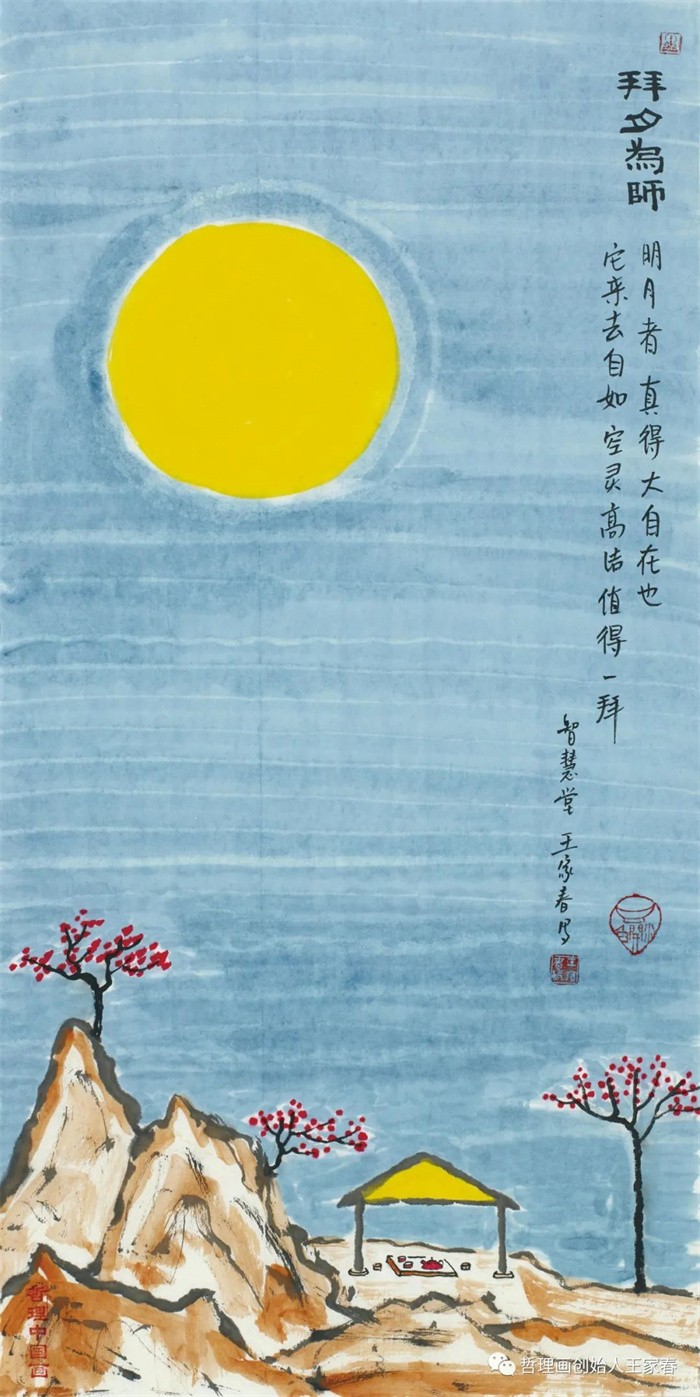 拜月為師
明月者 真得大自在也
它来去自如 空灵高洁 值得一拜
智慧堂 王家春写
哲理中国画
哲理画创始人王家春